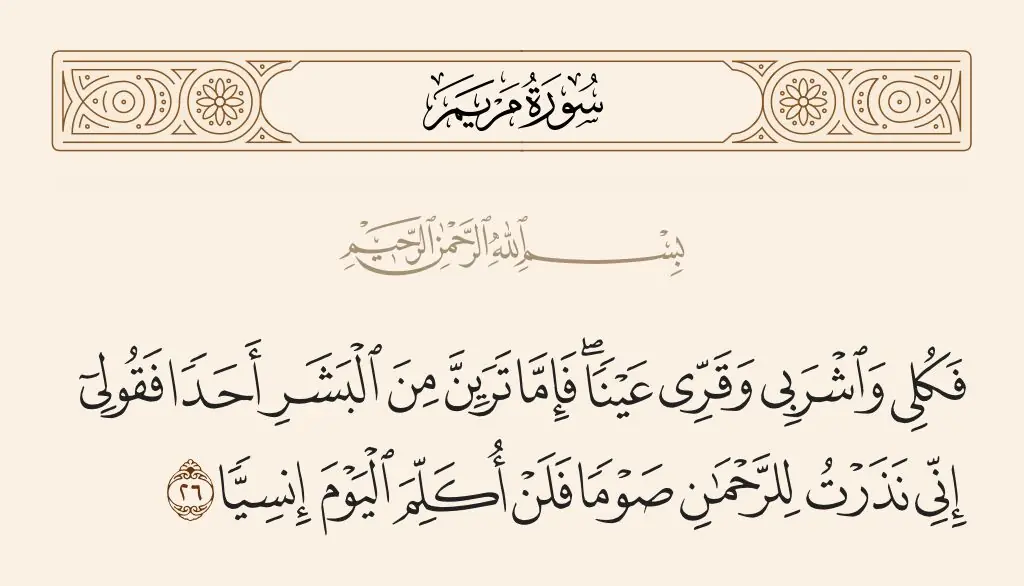 سُورَةُ مَرْيَمَ
بِسْمِ ٱللَّهِ ٱلرَّحْمَٰنِ ٱلرَّحِيمِ
فَكُلِى وَٱشْرَبِى وَقَرِّى عَيْنًا ۖ فَإِمَّا تَرَيِنَّ مِنَ ٱلْبَشَرِ أَحَدًا فَقُولِىٓ
إِنِّى نَذَرْتُ لِلرَّحْمَٰنِ صَوْمًا فَلَنْ أُكَلِّمَ ٱلْيَوْمَ إِنسِيًّا ٢٦